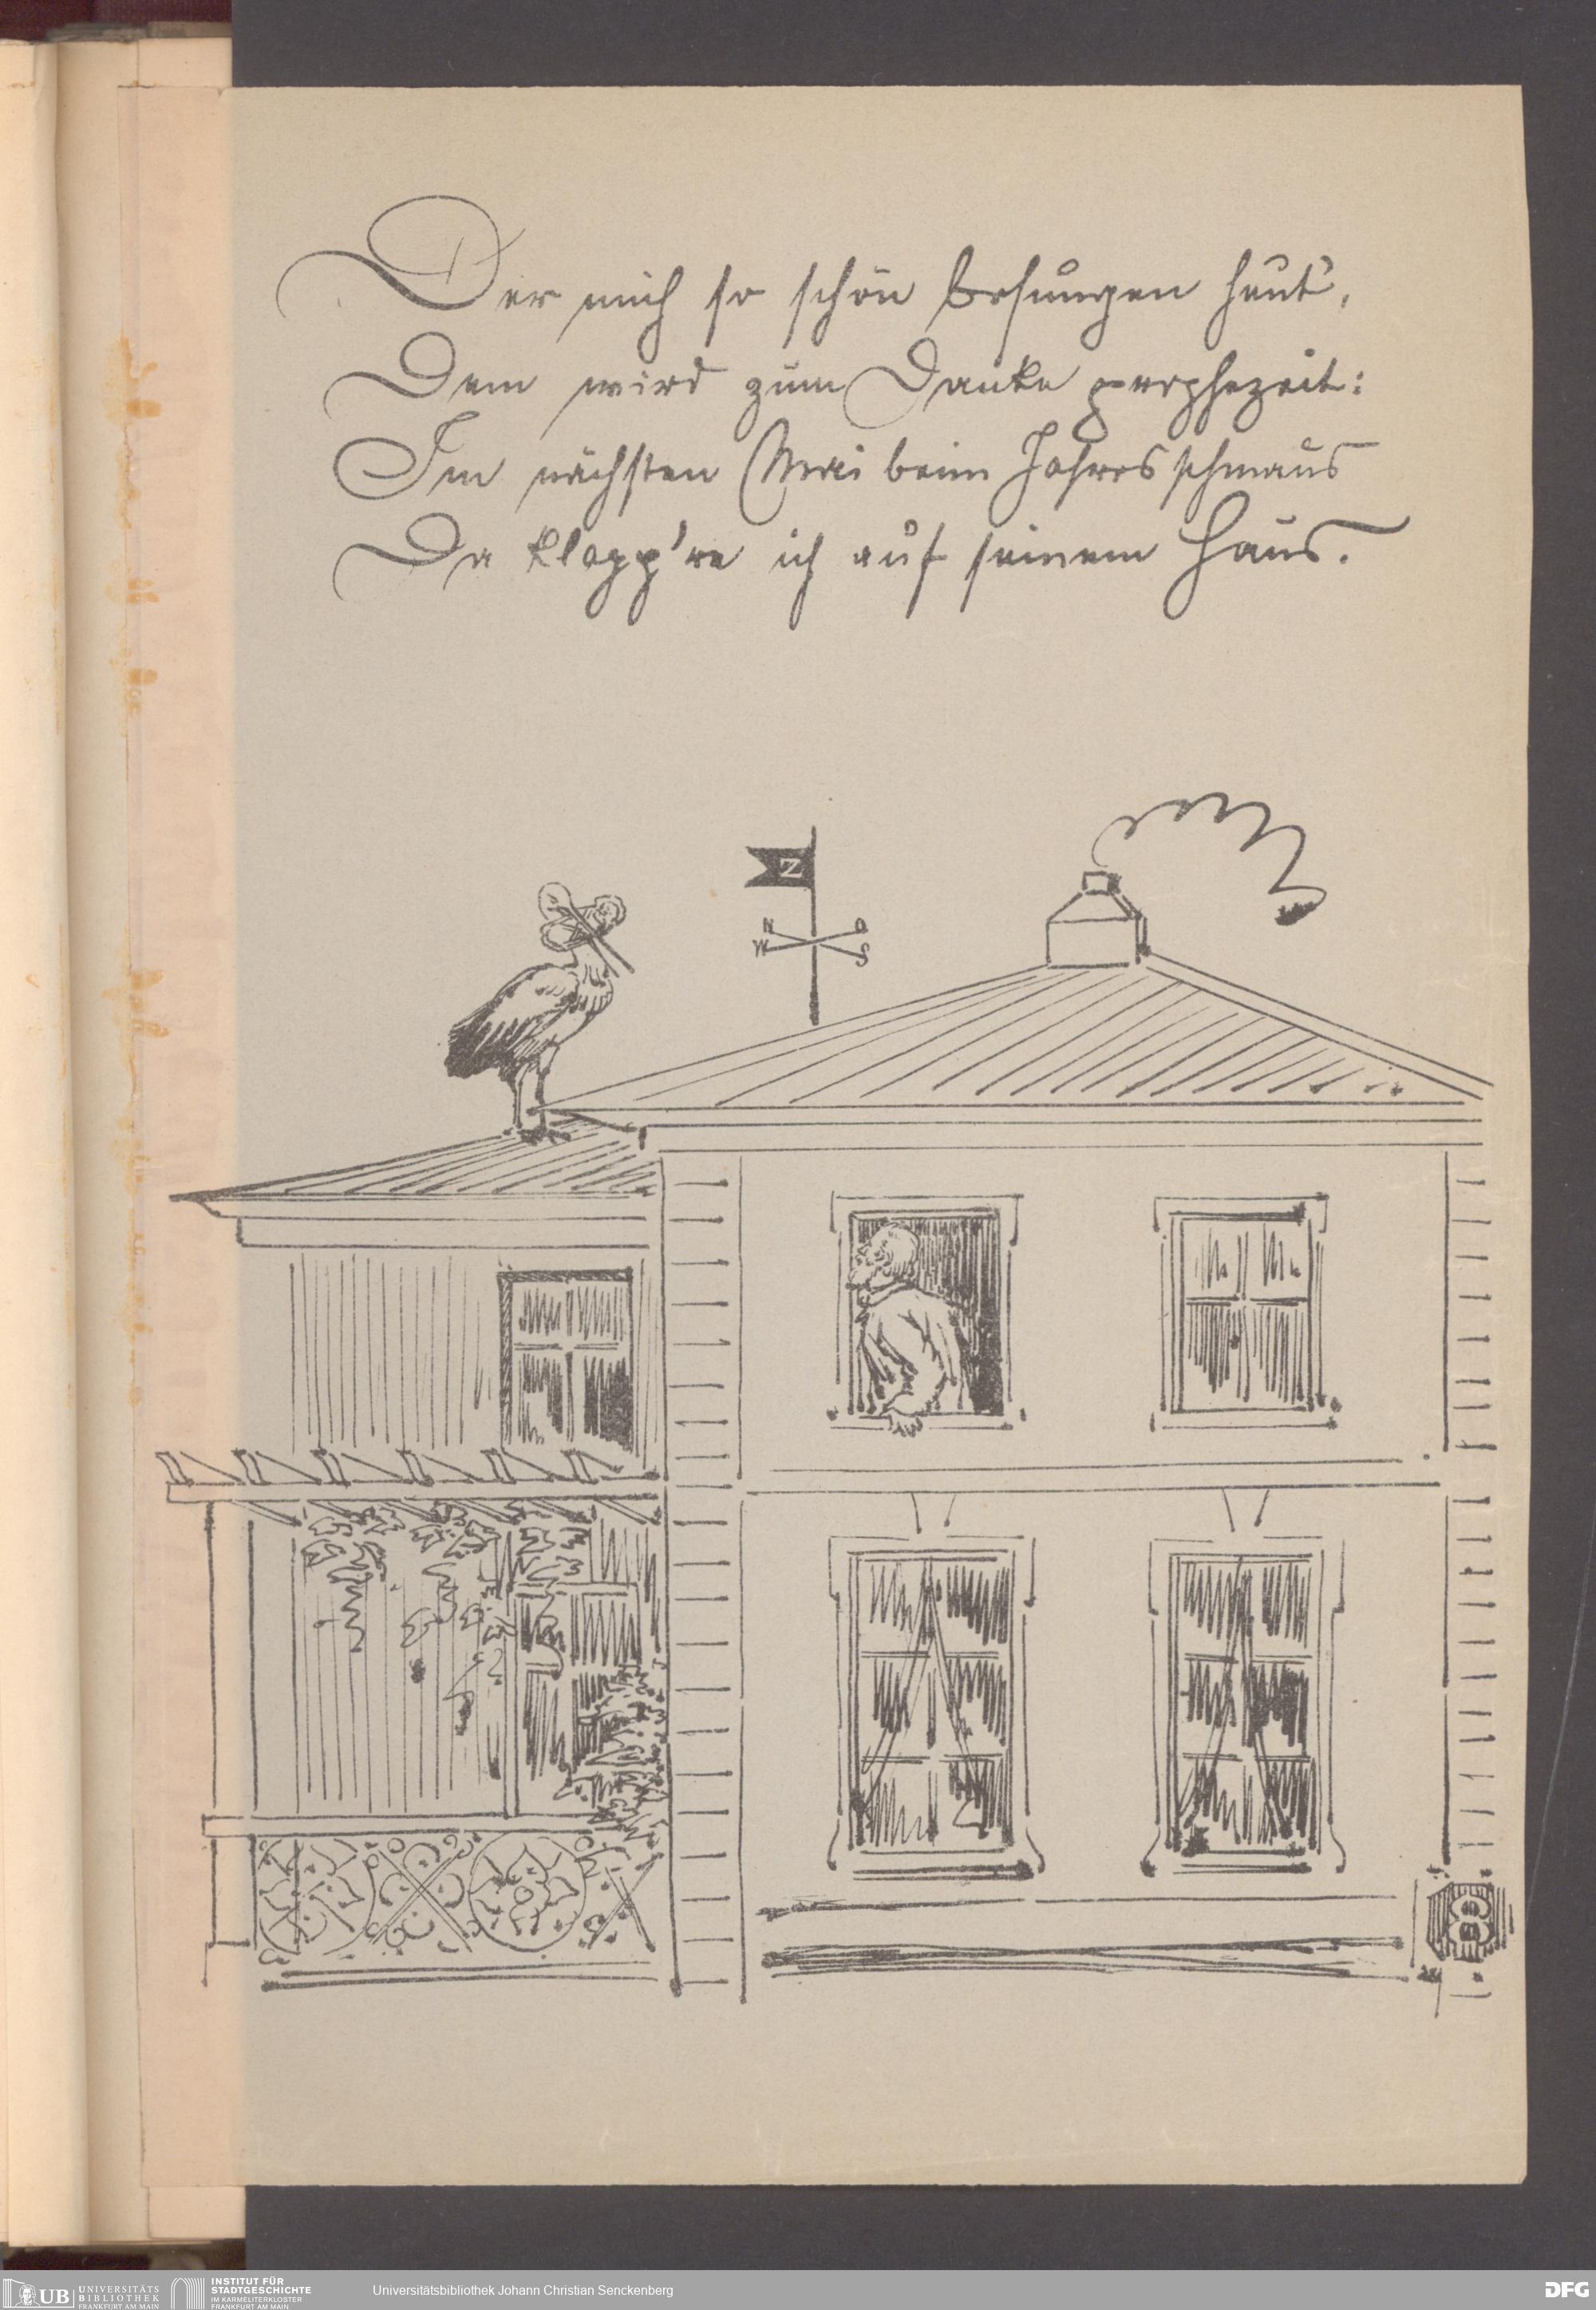 Der mich so schön besungen heut',
Dem wird zum Danke prophezeit:
Im nächsten Mai beim Jahresschmaus
Da klapp're ich auf seinem Haus.
Z
N O
W S
8
UB UNIVERSITÄTS
BIBLIOTHEK
FRANKFURT AM MAIN
INSTITUT FÜR
STADTGESCHICHTE
IM KARMELITERKLOSTER
FRANKFURT AM MAIN
Universitätsbibliothek Johann Christian Senckenberg
DFG